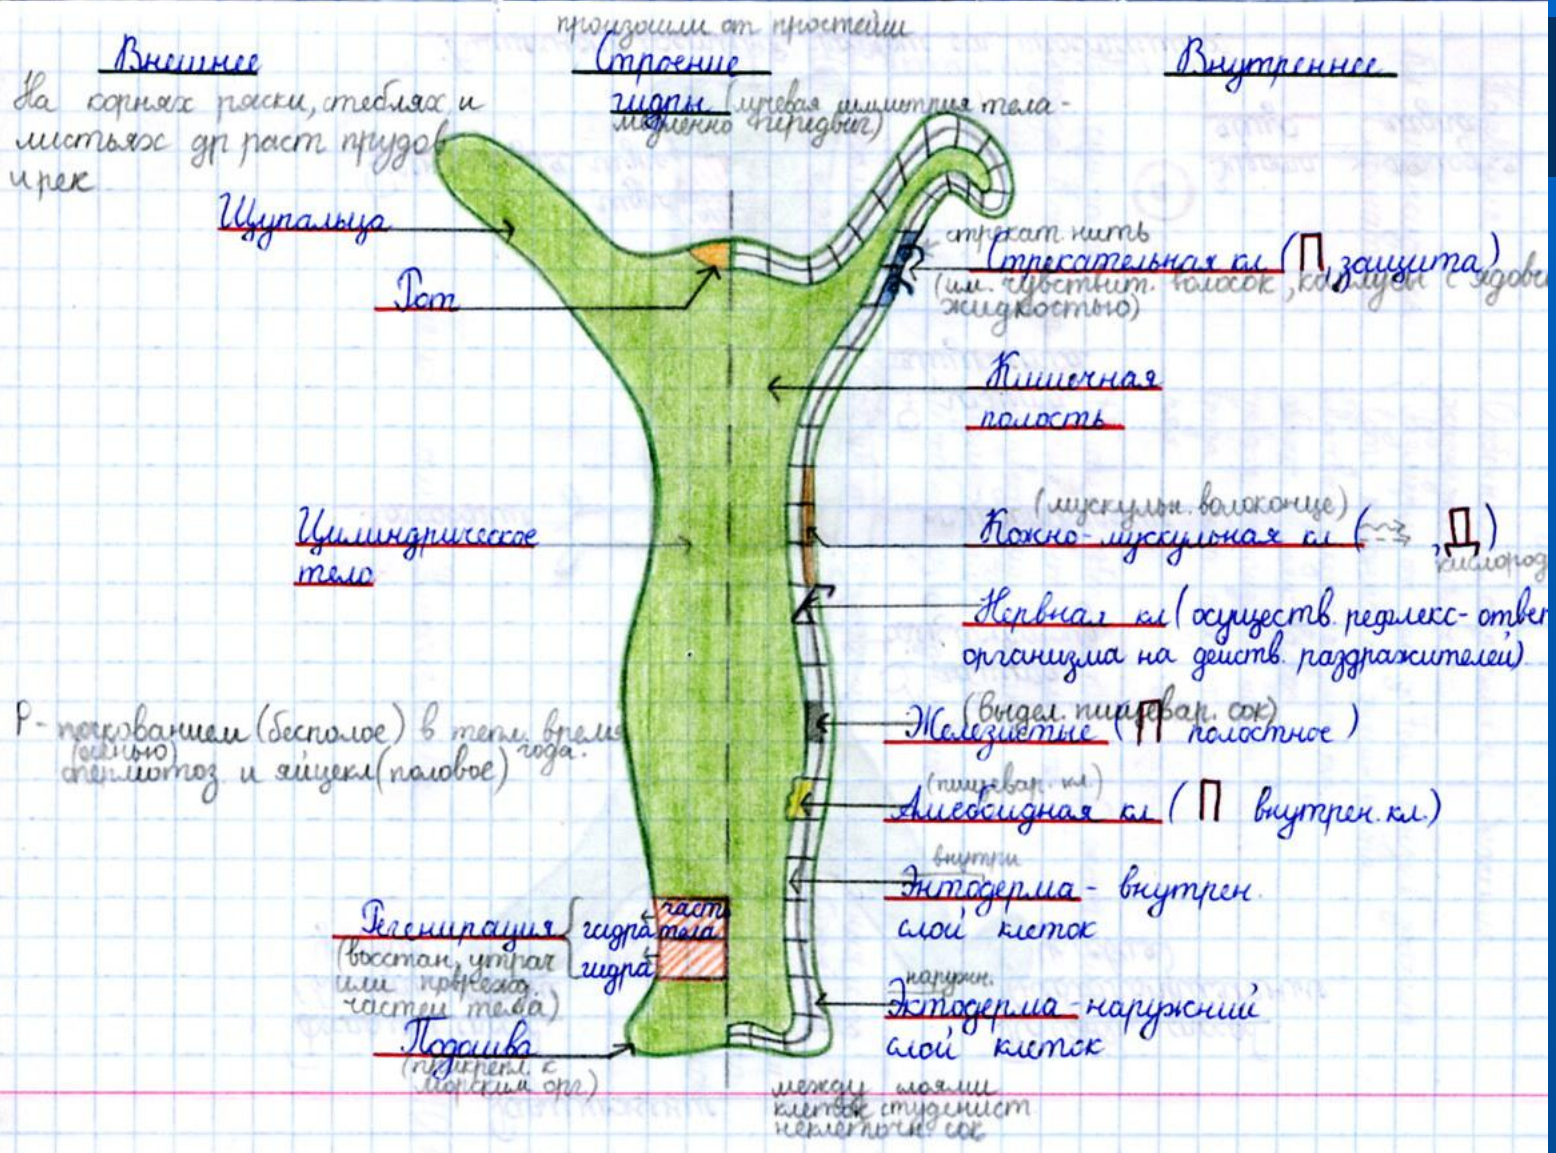 произошли от простейш
Внешнее
Строение
гидры (лучевая симметрия тела-
медленно передвиг)
Внутреннее
На корнях ряски, стеблях и
листьях др раст прудов
и рек
Щупальца
Рот
Цилиндрическое
тело
Р- почкованием (бесполое) в тепл. время
года.
(осенью)
сперматоз. и яйцекл (половое)
Регенирация
(восстан. утрач
или поврежд.
частей тела)
гидра
гидра
част
тела
Подошва
(прикрепл. к
морским орг)
стрекат. нить
Стрекательная кл (П, защита)
(им. чувствит. волосок, капсулы с ядови
жидкостью)
Кишечная
полость
(мускульн. волоконце)
Кожно-мускульная кл ( , Д)
кислород
Нервная кл (осуществ. рефлекс- ответ
организма на действ. раздражителей)
(выдел. пищевар. сок)
Железистые (П полостное)
(пищевар. кл.)
Амебоидная кл (П внутрен. кл.)
внутри
Энтодерма - внутрен.
слой клеток
наружн.
Эктодерма - наружний
слой клеток
между слоями
клеток студенист
неклеточн. сок